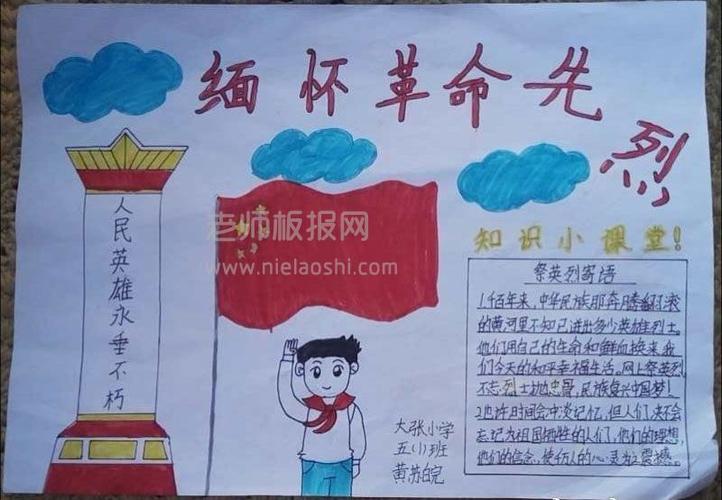 缅怀革命先烈
人民英雄永垂不朽
老师板报网
www.nielaoshi.com
知识小课堂!
祭英烈寄语
1.千百年来,中华民族那奔腾翻滚
的黄河里不知已迸出多少英雄烈士。
他们用自己的生命和鲜血换来我
们今天的和平幸福生活。网上祭英烈,
不忘烈士抛忠骨,民族复兴中国梦!
2.也许时间会冲淡记忆,但人们决不会
忘记为祖国牺牲的人们,他们的理想,
他们的信念,使万人的心灵为之震撼。
大张小学
五(1)班
黄苏皖